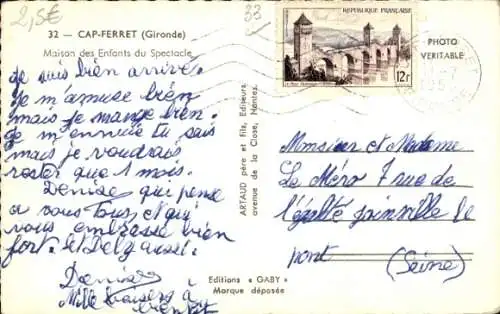 2,5€
33
32 — CAP-FERRET (Gironde)
Maison des Enfants du Spectacle
Je suis bien arrivée
Je m'amuse bien
mais je mange bien.
Je m'ennuie tu sais
mais je voudrais
rester que 1 mois.
Denise qui pense
a vous tous, et qui
vous embrasse bien
fort. et aussi.
Denise
Mille baisers à
bientôt
ARTAUD père et fils, Editeurs
avenue de la Close, Nantes.
Editions « GABY »
Marque déposée
REPUBLIQUE FRANÇAISE
12f
PHOTO
VERITABLE
Monsieur et Madame
Le Méro 7 rue de
l'égalité joinville le
pont (Seine)